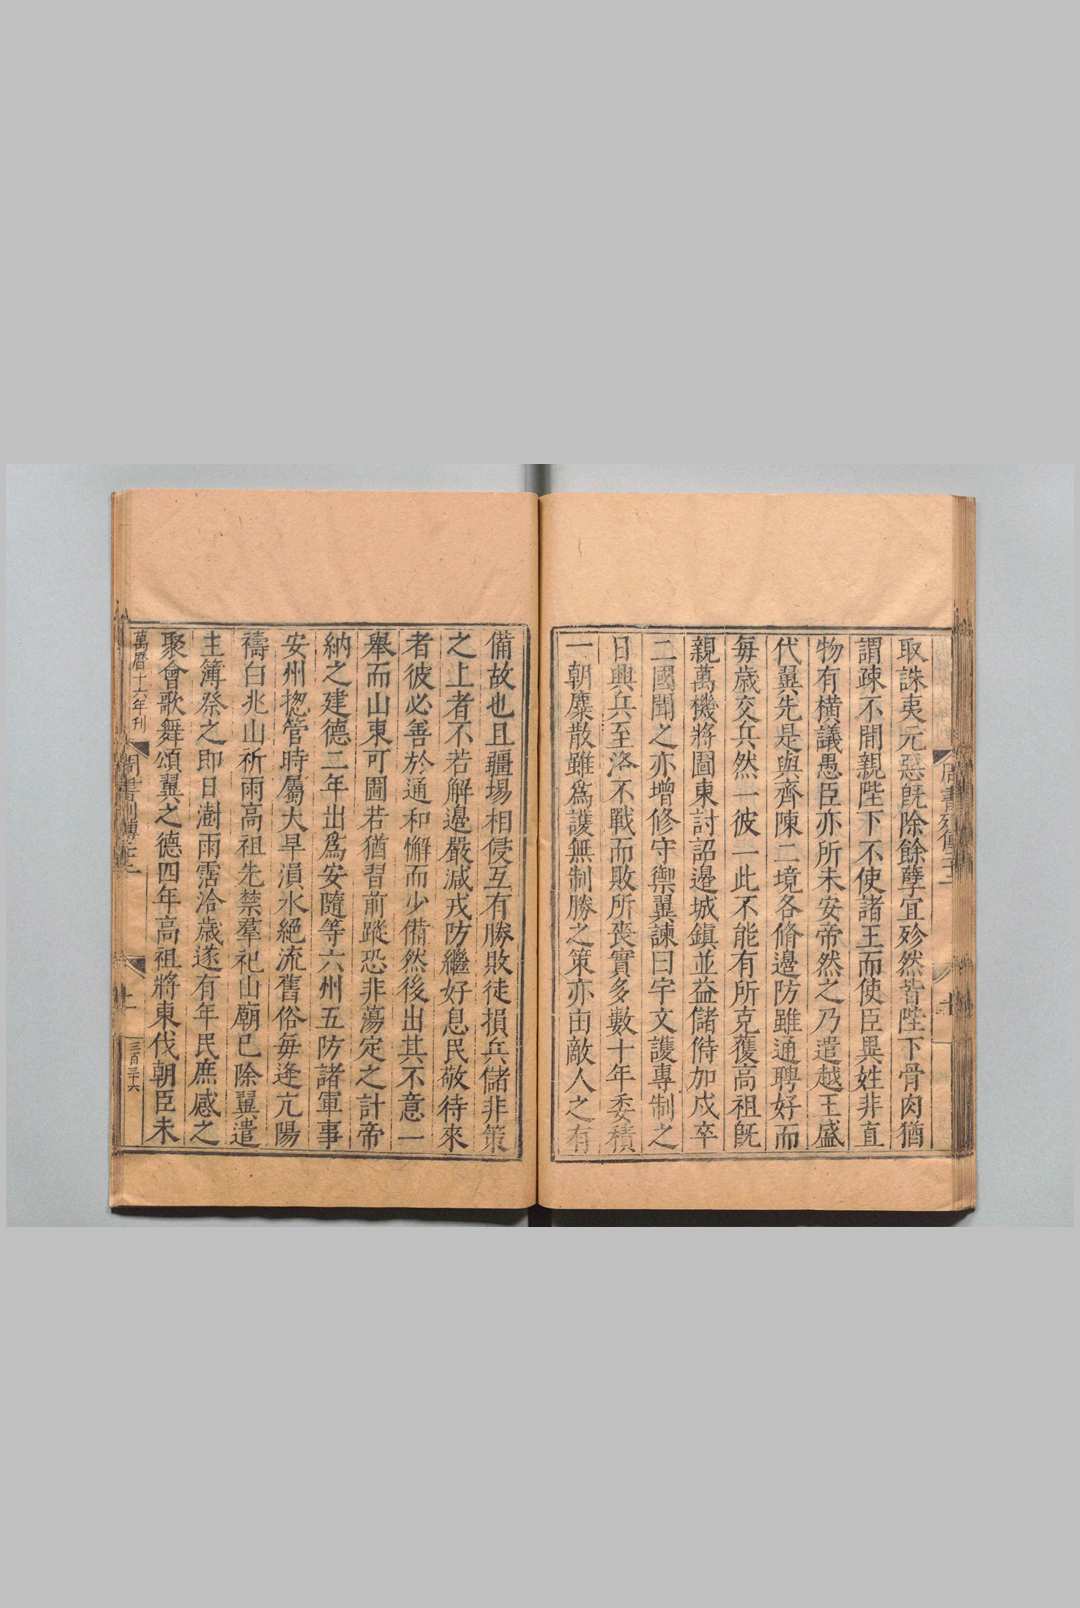 取誅夷元惡既除餘孽宜殄然皆陛下骨肉猶
謂疎不間親陛下不使諸王而使臣異姓非直
物有橫議愚臣亦所未安帝然之乃遣越王盛
代翼先是與齊陳二境各脩邊防雖通聘好而
每歲交兵然一彼一此不能有所克獲高祖既
親萬機將圖東討詔邊城鎮並益儲偫加戍卒
二國聞之亦增修守禦翼諫曰宇文護專制之
日興兵至洛不戰而敗所喪實多數十年委積
一朝麋散雖爲護無制勝之策亦由敵人之有
備故也且疆埸相侵互有勝敗徒損兵儲非策
之上者不若解邊嚴減戎防繼好息民敬待來
者彼必善於通和懈而少備然後出其不意一
舉而山東可圖若猶習前蹤恐非蕩定之計帝
納之建德二年出爲安隨等六州五防諸軍事
安州揔管時屬大旱溳水絕流舊俗每逢亢陽
禱白兆山祈雨高祖先禁羣祀山廟已除翼遣
主簿祭之即日澍雨霑洽歲遂有年民庶感之
聚會歌舞頌翼之德四年高祖將東伐朝臣未
萬曆十六年刊
周書列傳
三百三十六